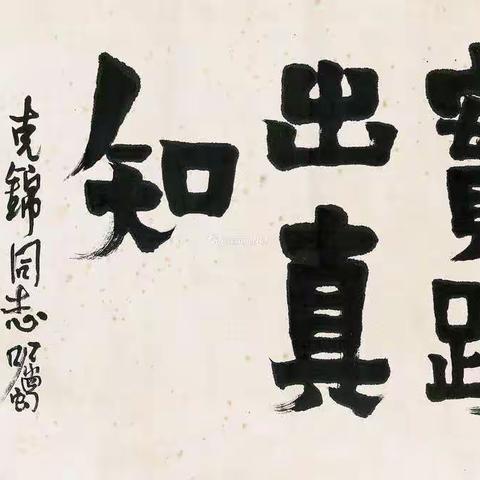 實踐
出真
知
克錦同志囑